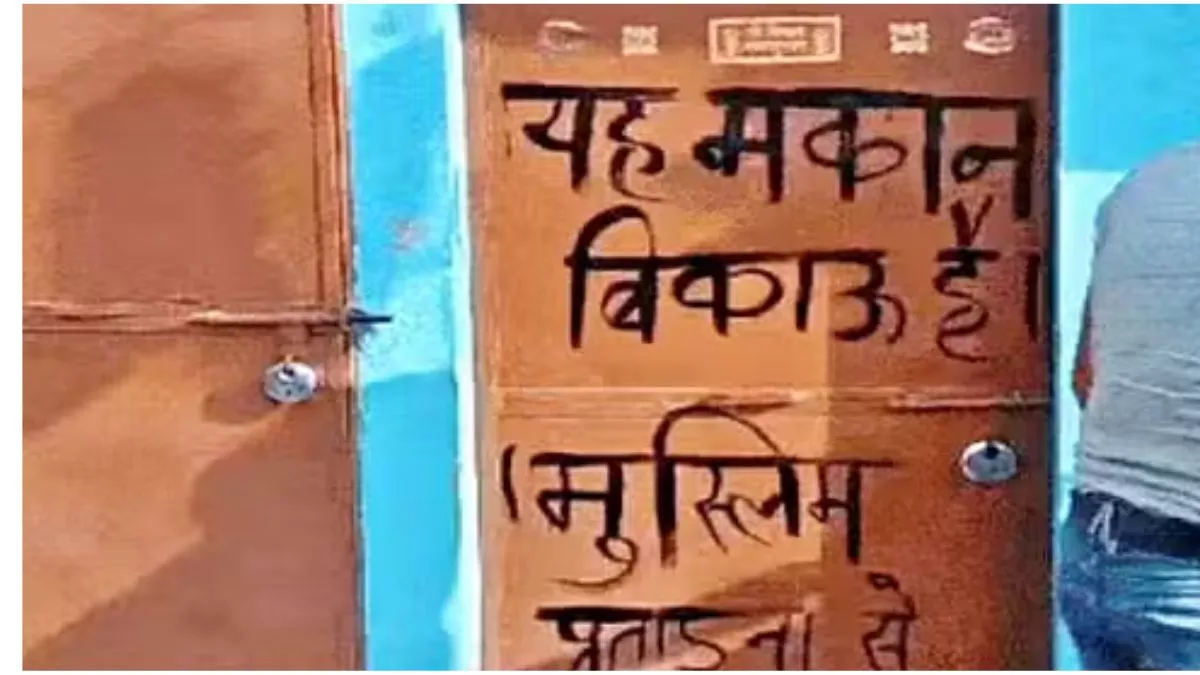 यह मकान
बिकाऊ है।
(मुस्लिम
प्रताड़ना से